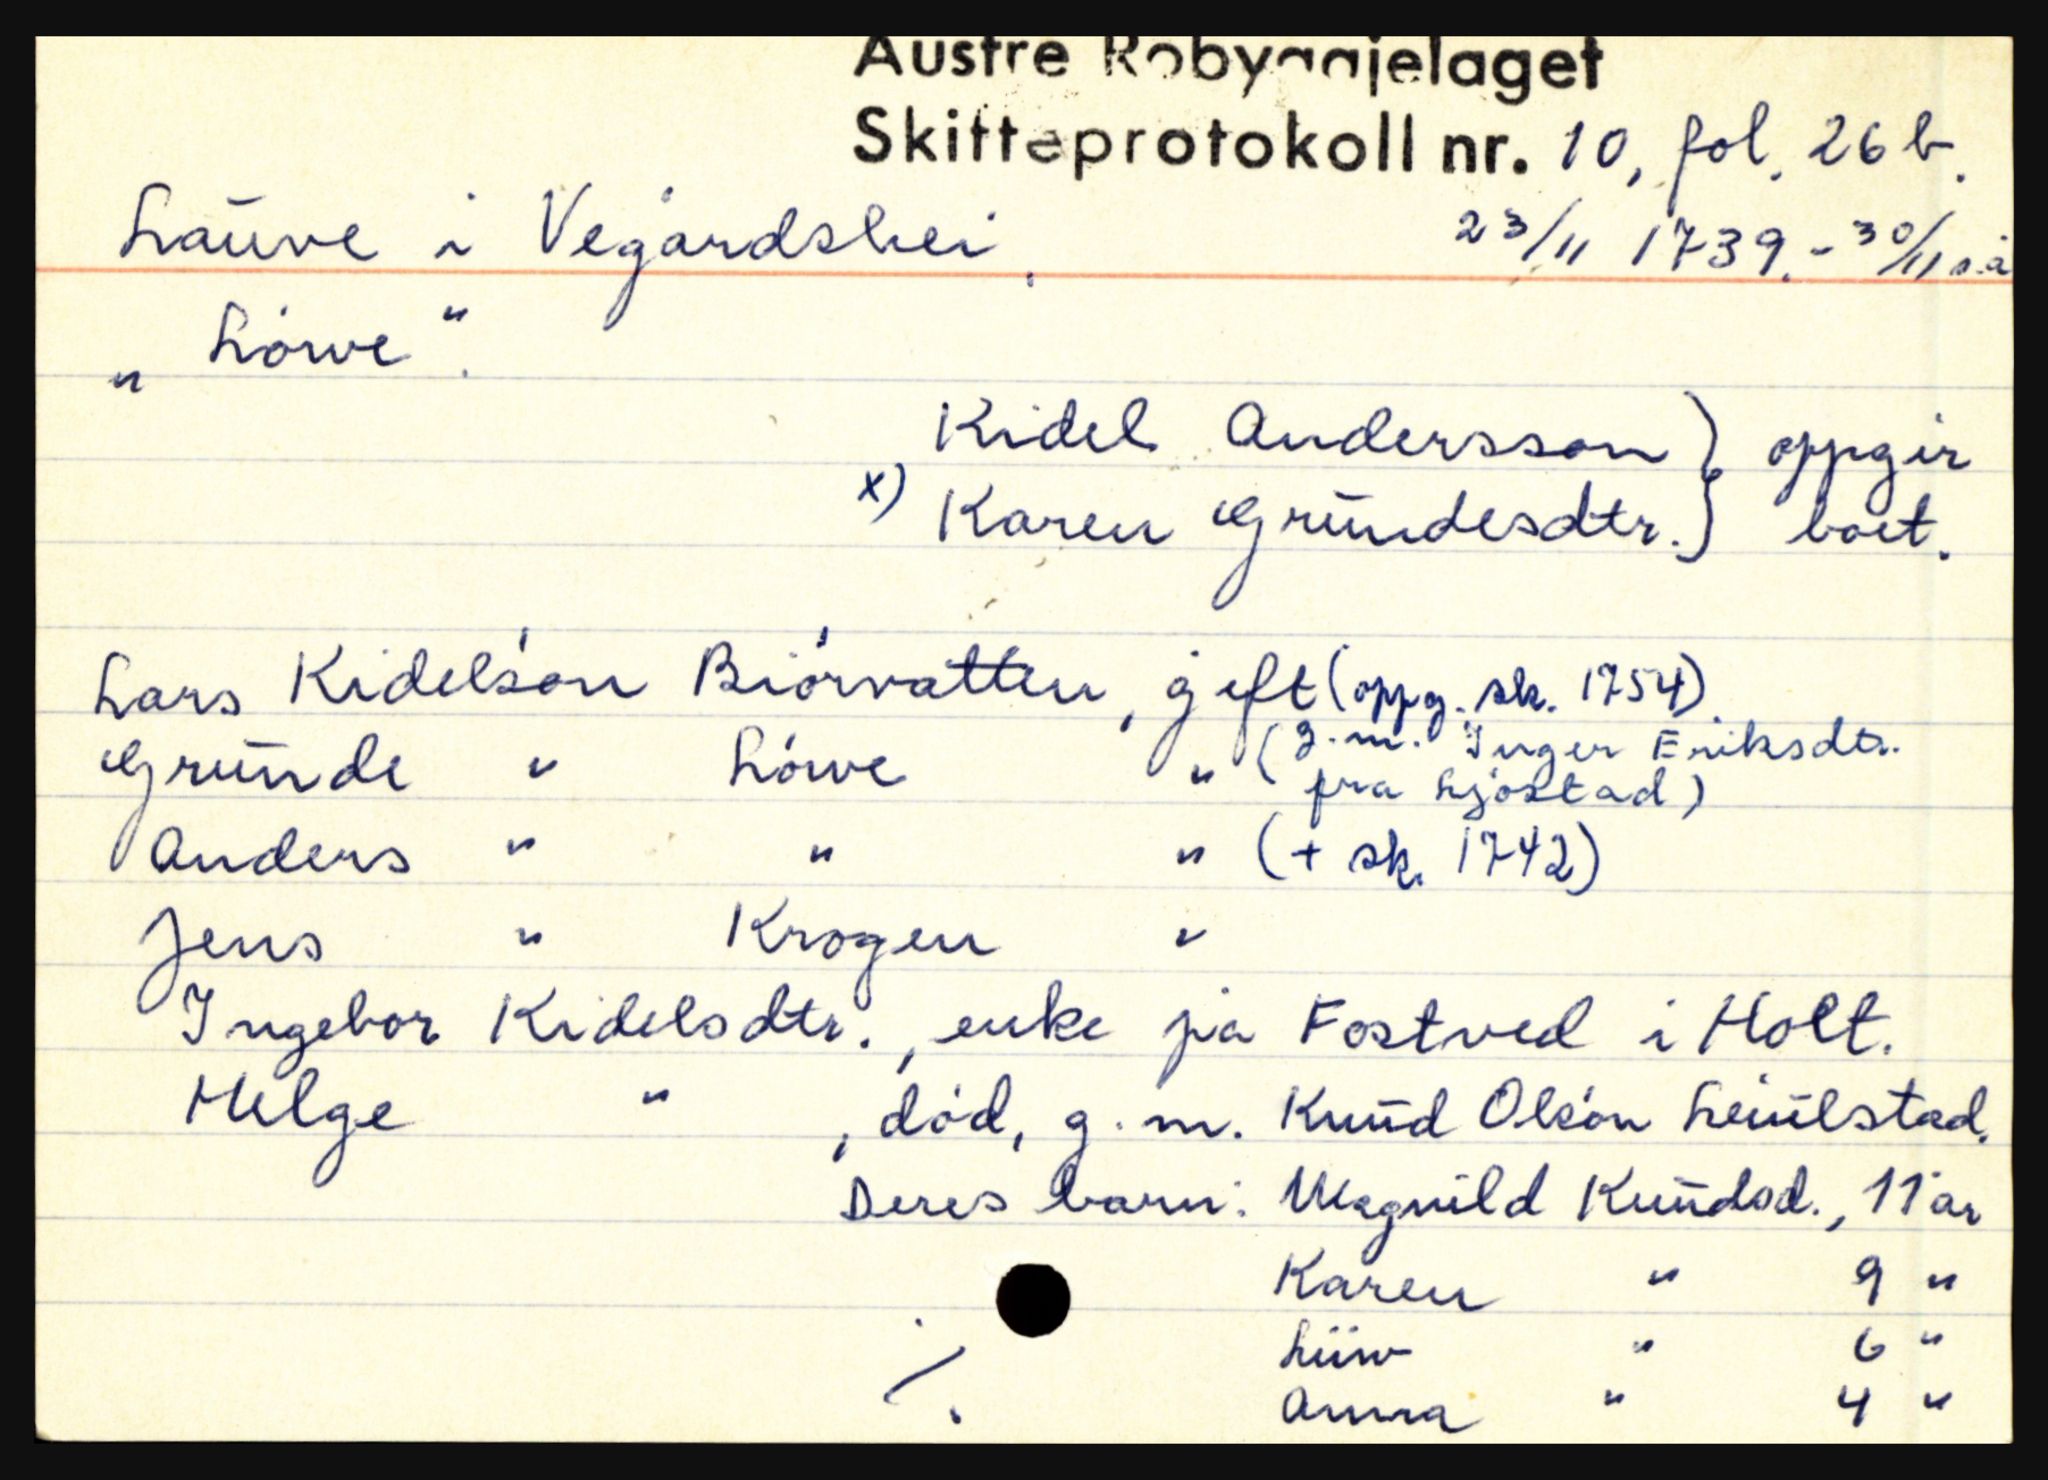 Austre Robyggjelaget
Skifteprotokoll nr. 10, fol. 26 b.
Lauve i Vegårdshei. 23/11 1739. - 30/11 s.å
„Løwe“.
Kidel Andersson } oppgir
x) Karen Grundesdtr. } boet.
Lars Kidelsøn Biørvatten, gift (oppg. sk. 1754)
Grunde " Løwe " (g.m. Inger Eriksdtr.
fra Ljøstad)
Anders " " " (+ sk. 1742)
Jens " Krogen "
Ingebor Kidelsdtr., enke på Fostved i Holt.
Helge " , død, g.m. Knud Olsøn Leulstad.
Deres barn: Magnild Knudsd., 11 år
Karen " 9 "
Liiw " 6 "
Anna " 4 "
./.